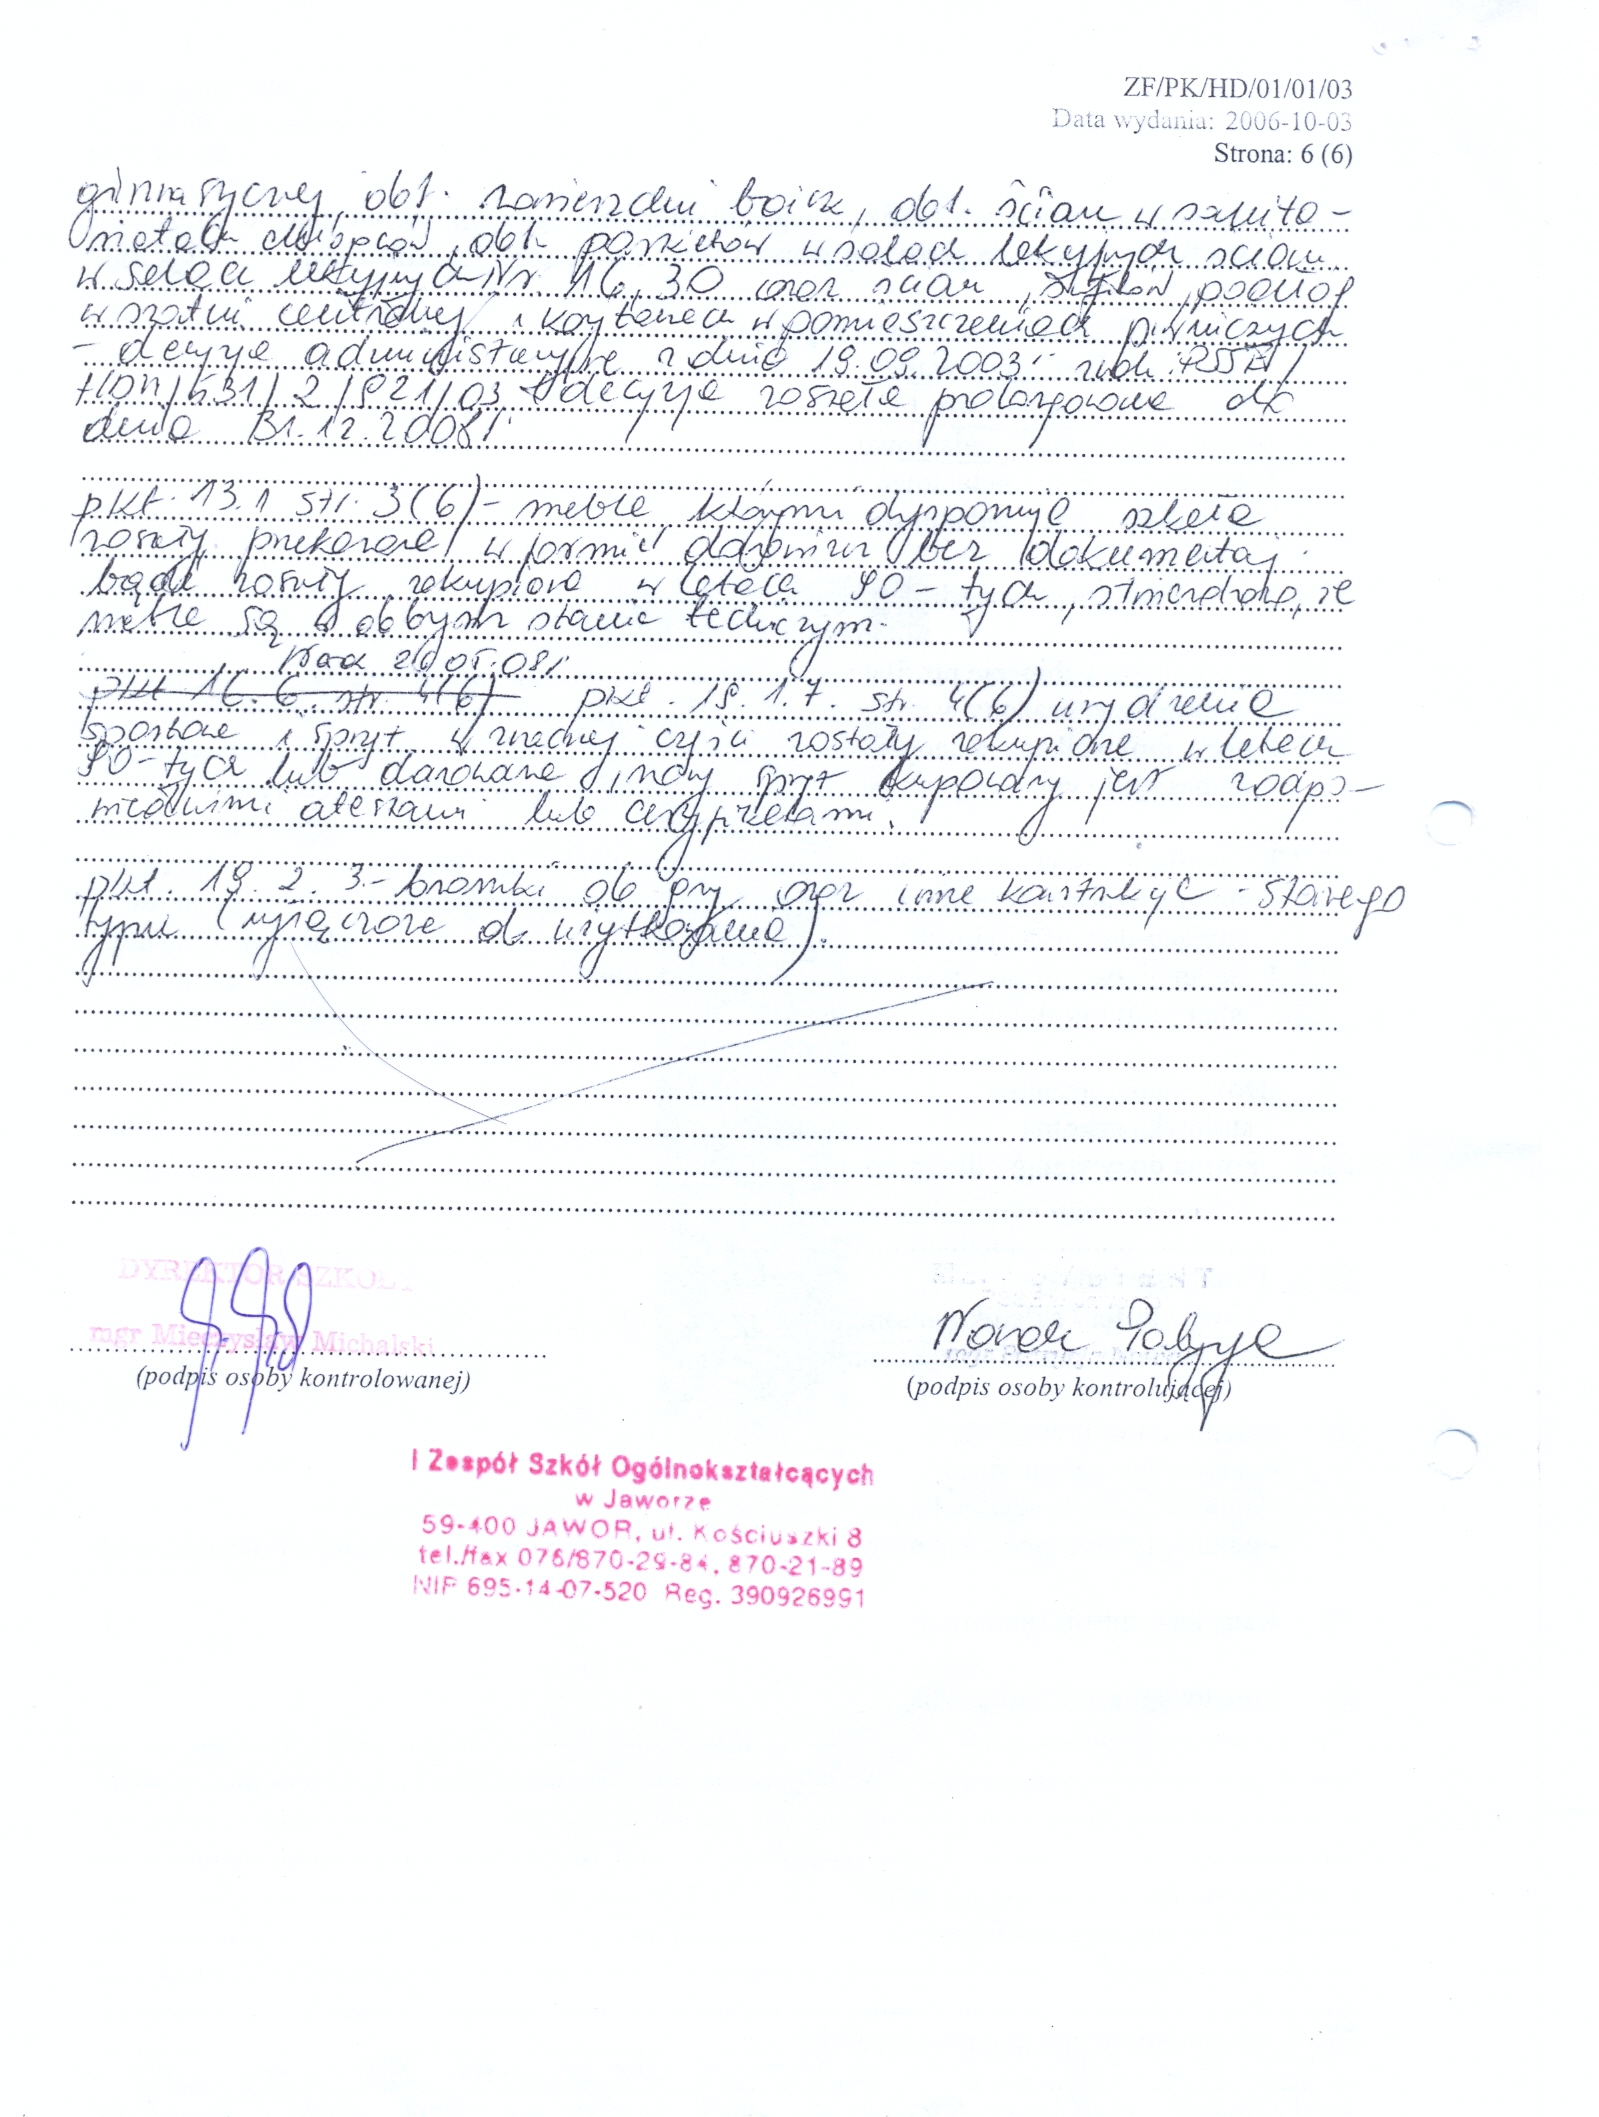 ZF/PK/HD/01/01/03
Data wydania: 2006-10-03
Strona: 6 (6)
gimnastycznej, dot. nawierzchni boisk, dot. ścian w sanita-
riatach chłopców, dot. parkietów w salach lekcyjnych ścian
w salach lekcyjnych Nr. 16, 30 oraz ścian, sufitów, podłóg
w szatni centralnej i korytarzach w pomieszczeniach piwnicznych
- decyzje administracyjne z dnia 19.09.2003r znak: PSSE/
HDM/431/2/921/03 decyzja została prolongowana do
dnia 31.12.2008r.
pkt. 13.1 str. 3(6) - meble, którymi dysponuje szkoła
zostały przekazane w formie darowizn bez dokumentacji
bądź zostały zakupione w latach 90-tych, stwierdzono, że
meble są w dobrym stanie technicznym.
26.05.08r.
pkt 16.6. str. 4(6) pkt. 19.1.7. str. 4(6) urządzenia
sportowe i sprzęt w znacznej części zostały zakupione w latach
90-tych lub darowane, nowy sprzęt kupowany jest z odpo-
wiednimi atestami lub certyfikatami.
pkt. 19.2.3.- bramki do gry oraz inne konstrukcje - starego
typu (wyłączone z użytkowania).
DYREKTOR SZKOŁY
mgr Mieczysław Michalski
(podpis osoby kontrolowanej)
(podpis osoby kontrolującej)
I Zespół Szkół Ogólnokształcących
w Jaworze
59-400 JAWOR, ul. Kościuszki 8
tel./fax 076/870-29-84, 870-21-89
NIP 695-14-07-520 Reg. 390926991